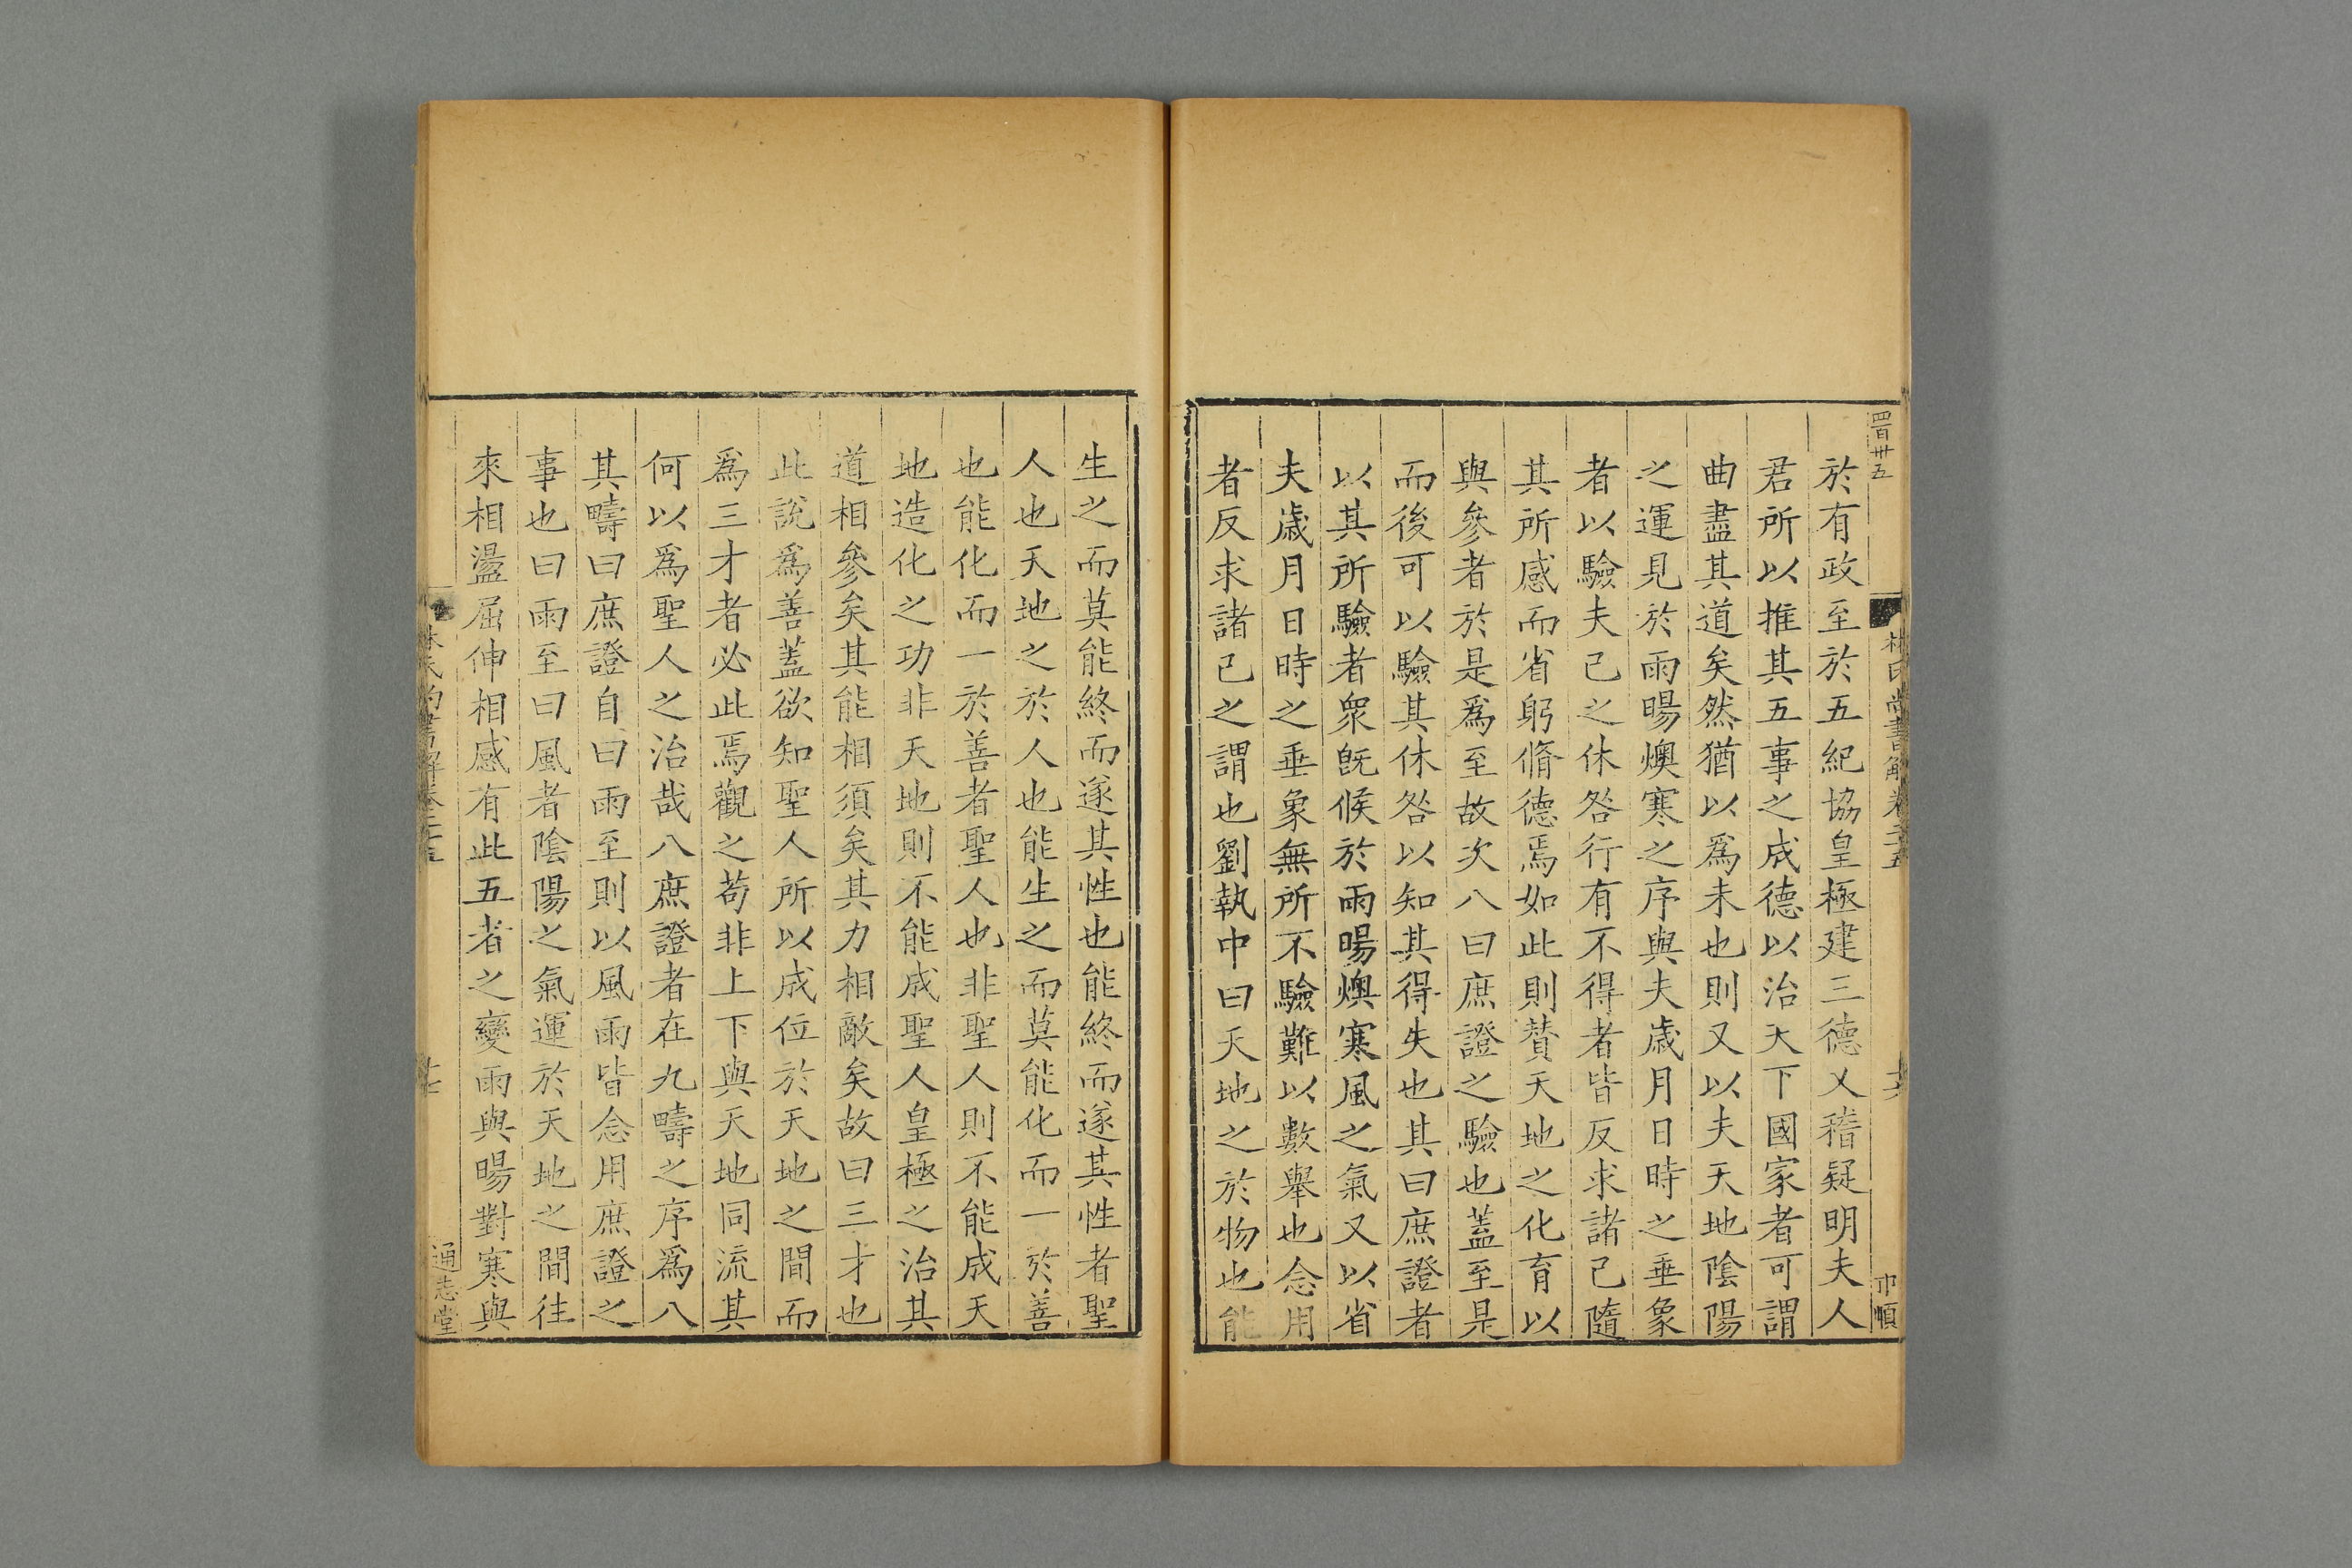 四百卅五
林氏尚書解卷二十五
於有政至於五紀協皇極建三德乂稽疑明夫人
君所以推其五事之成德以治天下國家者可謂
曲盡其道矣然猶以爲未也則又以夫天地陰陽
之運見於雨暘燠寒之序與夫歲月日時之垂象
者以驗夫己之休咎行有不得者皆反求諸己隨
其所感而省躬脩德焉如此則贊天地之化育以
與參者於是爲至故次八曰庶證之驗也蓋至是
而後可以驗其休咎以知其得失也其曰庶證者
以其所驗者衆旣候於雨暘燠寒風之氣又以省
夫歲月日時之垂象無所不驗難以數舉也念用
者反求諸己之謂也劉執中曰天地之於物也能
生之而莫能終而遂其性也能終而遂其性者聖
人也天地之於人也能生之而莫能化而一於善
也能化而一於善者聖人也非聖人則不能成天
地造化之功非天地則不能成聖人皇極之治其
道相參矣其能相須矣其力相敵矣故曰三才也
此說爲善蓋欲知聖人所以成位於天地之間而
爲三才者必此焉觀之苟非上下與天地同流其
何以爲聖人之治哉八庶證者在九疇之序爲八
其疇曰庶證自曰雨至則以風雨皆念用庶證之
事也曰雨至曰風者陰陽之氣運於天地之間往
來相盪屈伸相感有此五者之變雨與暘對寒與
林氏尚書解卷二十五
十七
通志堂